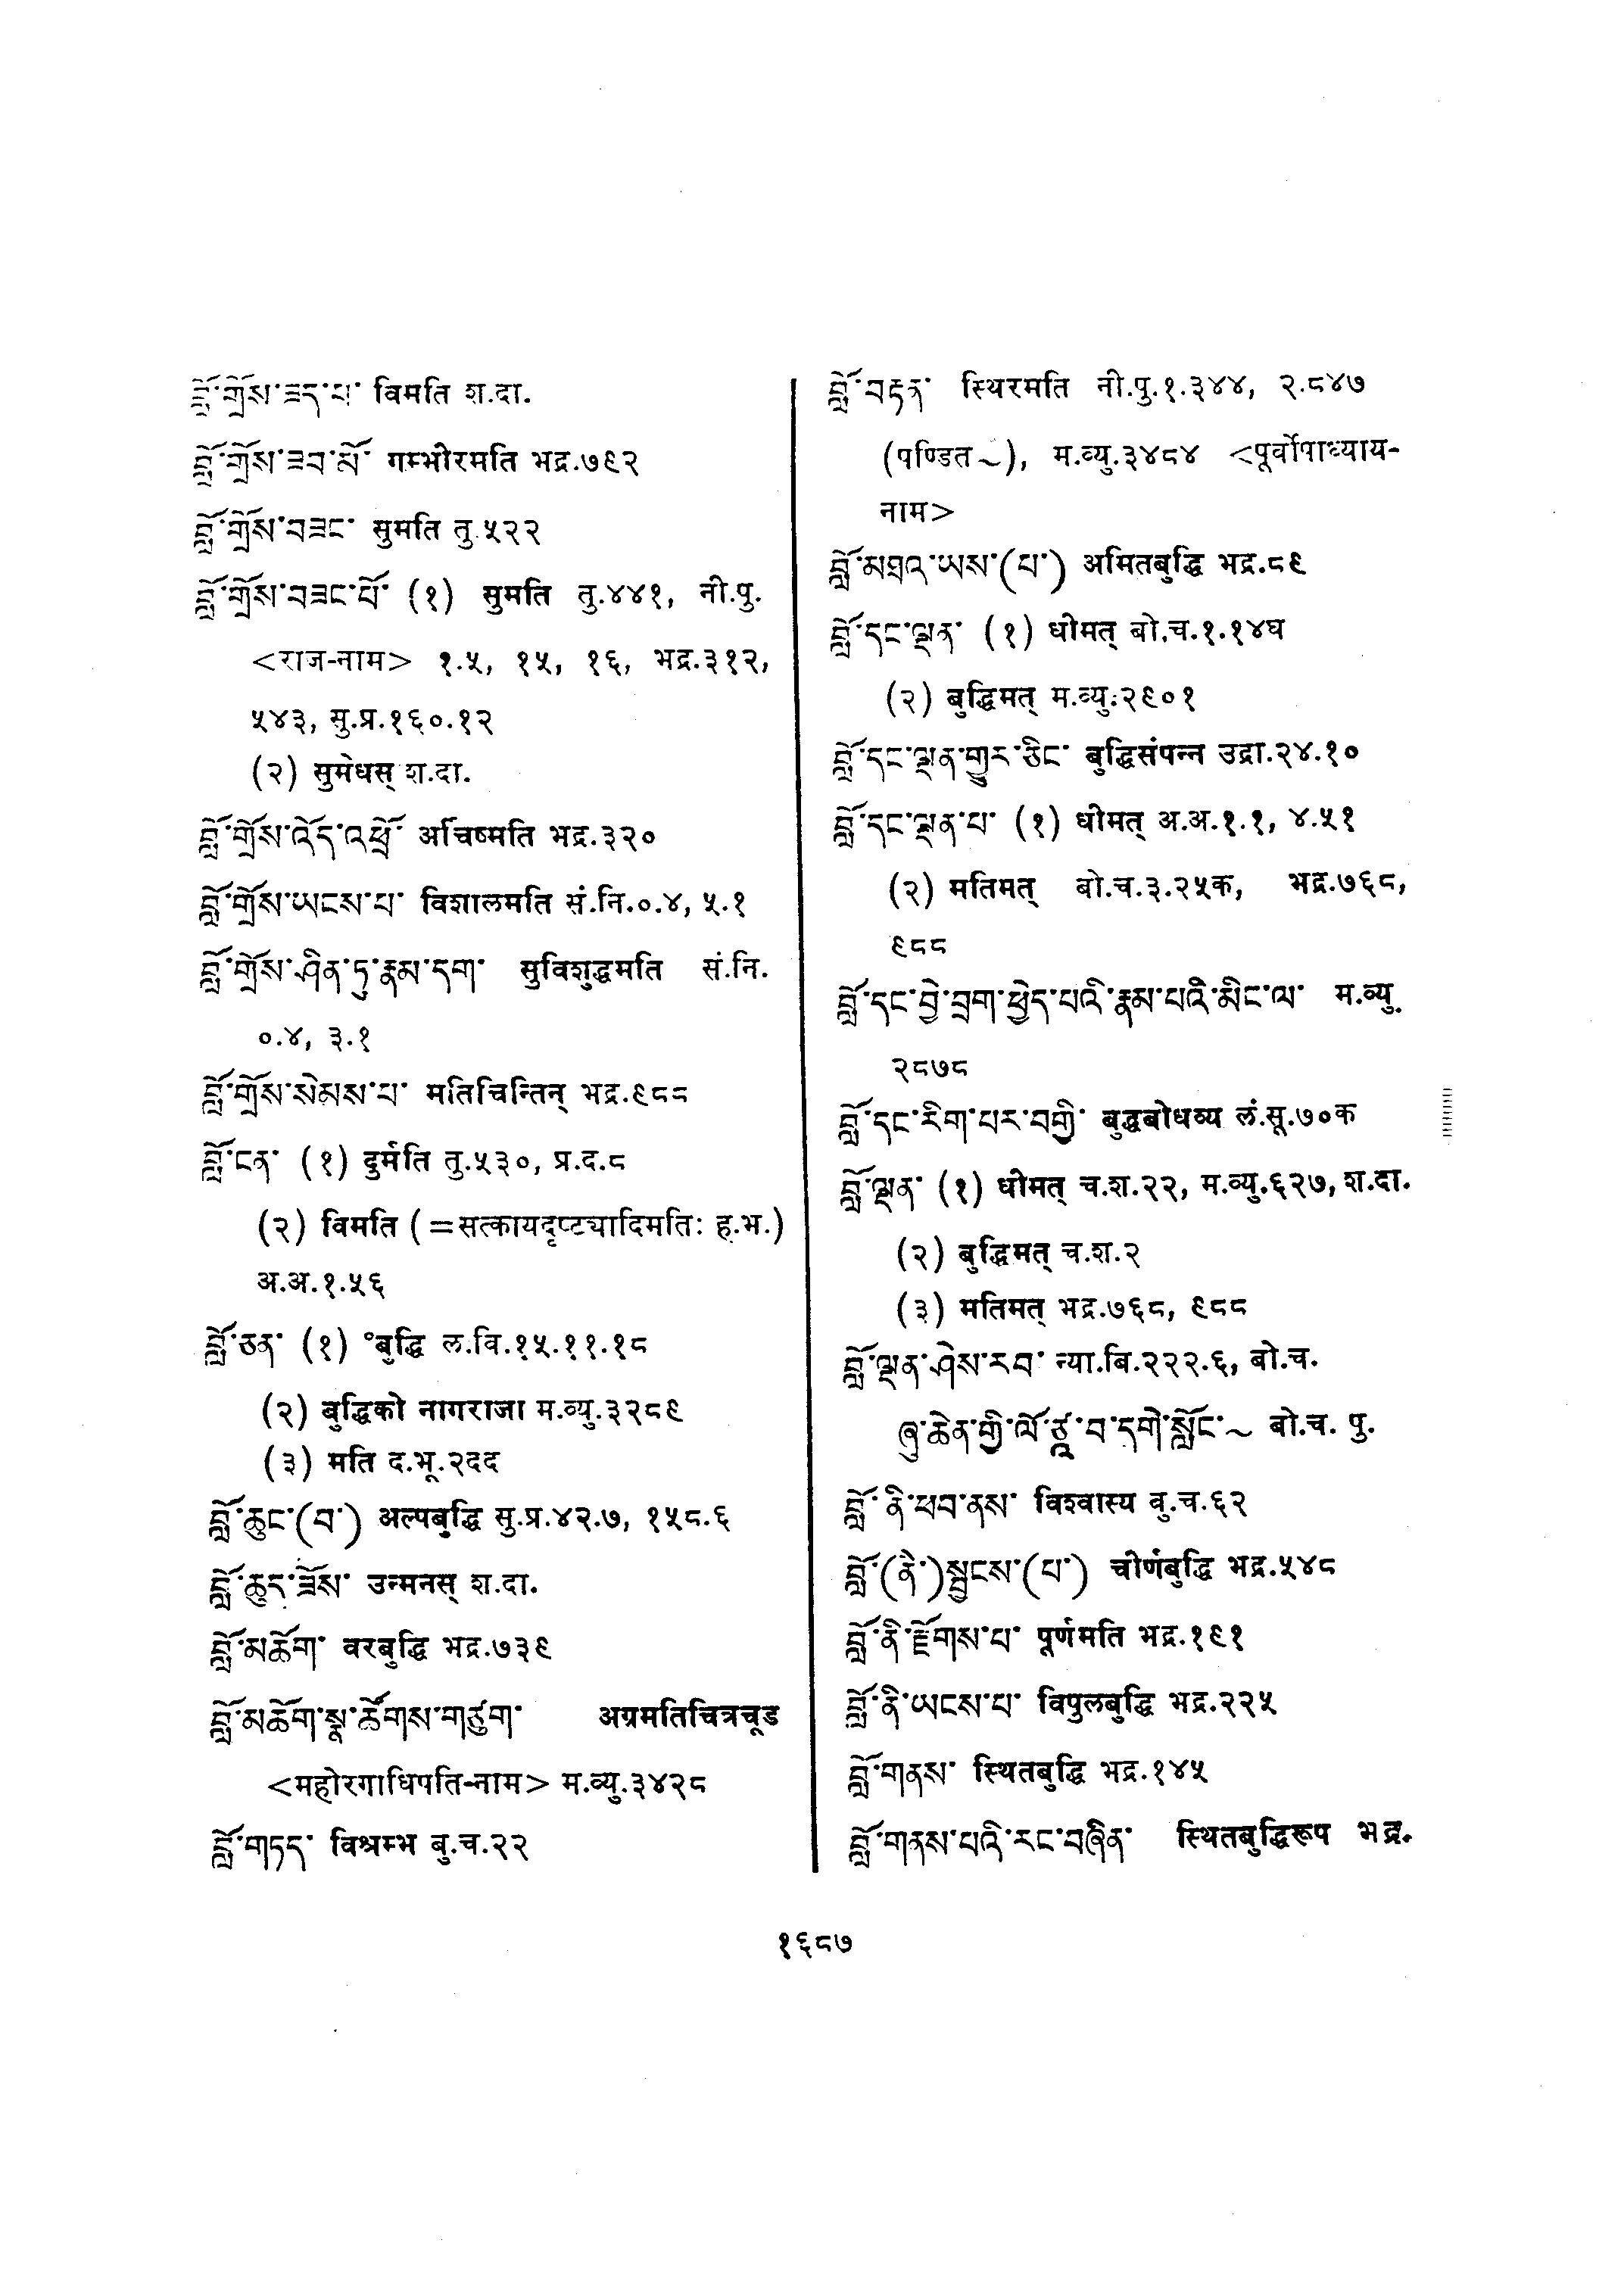 བློ་གྲོས་ཟད་པ་ विमति श.दा.
བློ་གྲོས་ཟབ་མོ་ गम्भीरमति भद्र.७९२
བློ་གྲོས་བཟང་ सुमति तु.५२२
བློ་གྲོས་བཟང་པོ་ (१) सुमति तु.४४१, नी.पु.
<राज-नाम> १.५, १५, १६, भद्र.३१२,
५४३, सु.प्र.१६०.१२
(२) सुमेधस् श.दा.
བློ་གྲོས་འོད་འཕྲོ་ अर्चिष्मति भद्र.३२०
བློ་གྲོས་ཡངས་པ་ विशालमति सं.नि.०.४, ५.१
བློ་གྲོས་ཤིན་ཏུ་རྣམ་དག་ सुविशुद्धमति सं.नि.
०.४, ३.१
བློ་གྲོས་སེམས་པ་ मतिचिन्तिन् भद्र.९८८
བློ་ངན་ (१) दुर्मति तु.५३०, प्र.द.८
(२) विमति (=सत्कायदृष्ट्यादिमतिः ह.भ.)
अ.अ.१.५६
བློ་ཅན་ (१) °बुद्धि ल.वि.१५.११.१८
(२) बुद्धिको नागराजा म.व्यु.३२८९
(३) मति द.भू.२दद
བློ་ཆུང་(བ་) अल्पबुद्धि सु.प्र.४२.७, १५८.६
བློ་ཆུད་ཟོས་ उन्मनस् श.दा.
བློ་མཆོག་ वरबुद्धि भद्र.७३९
བློ་མཆོག་སྣ་ཚོགས་གཙུག་ अग्रमतिचित्रचूड
<महोरगाधिपति-नाम> म.व्यु.३४२८
བློ་གཏད་ विश्रम्भ बु.च.२२
བློ་བརྟན་ स्थिरमति नी.पु.१.३४४, २.८४७
(पण्डित ~), म.व्यु.३४८४ <पूर्वोपाध्याय-
नाम>
བློ་མཐའ་ཡས་(པ་) अमितबुद्धि भद्र.८९
བློ་དང་ལྡན་ (१) धीमत् बो.च.१.१४घ
(२) बुद्धिमत् म.व्यु.२९०१
བློ་དང་ལྡན་གྱུར་ཅིང་ बुद्धिसंपन्न उद्रा.२४.१०
བློ་དང་ལྡན་པ་ (१) धीमत् अ.अ.१.१, ४.५१
(२) मतिमत् बो.च.३.२५क, भद्र.७६८,
९८८
བློ་དང་བྱེ་བྲག་ཕྱེད་པའི་རྣམ་པའི་མིང་ལ་ म.व्यु.
२८७८
བློ་དང་རིག་པར་བགྱི་ बुद्धबोधव्य लं.सू.७०क
བློ་ལྡན་ (१) धीमत् च.श.२२, म.व्यु.६२७, श.दा.
(२) बुद्धिमत् च.श.२
(३) मतिमत् भद्र.७६८, ९८८
བློ་ལྡན་ཤེས་རབ་ न्या.बि.२२२.६, बो.च.
ཞུ་ཆེན་གྱི་ལོ་ཙཱ་བ་དགེ་སློང་~ बो.च. पु.
བློ་ནི་ཕབ་ནས་ विश्वास्य बु.च.६२
བློ་(ནི་)སྦྱངས་(པ་) चीर्णबुद्धि भद्र.५४८
བློ་ནི་རྫོགས་པ་ पूर्णमति भद्र.१९१
བློ་ནི་ཡངས་པ་ विपुलबुद्धि भद्र.२२५
བློ་གནས་ स्थितबुद्धि भद्र.१४५
བློ་གནས་པའི་རང་བཞིན་ स्थितबुद्धिरूप भद्र.
१६८७